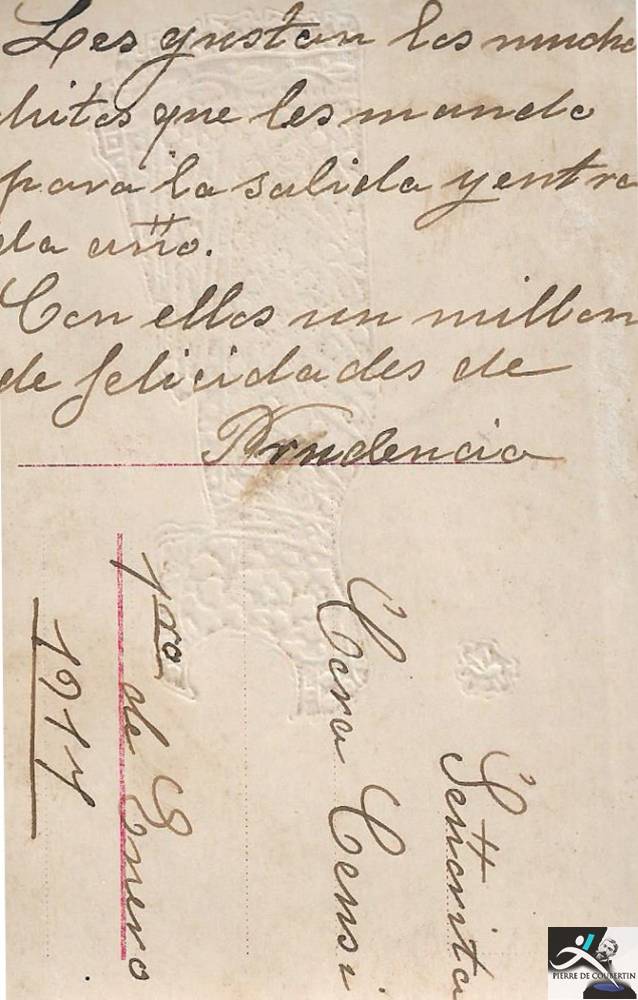 Les gustan los mucha
chitos que les mando
para la salida y entra
da año.
Con ellos un millon
de felicidades de
Prudencia
Señorita
Cora Censi
1ro de Enero
1911
PIERRE DE COUBERTIN